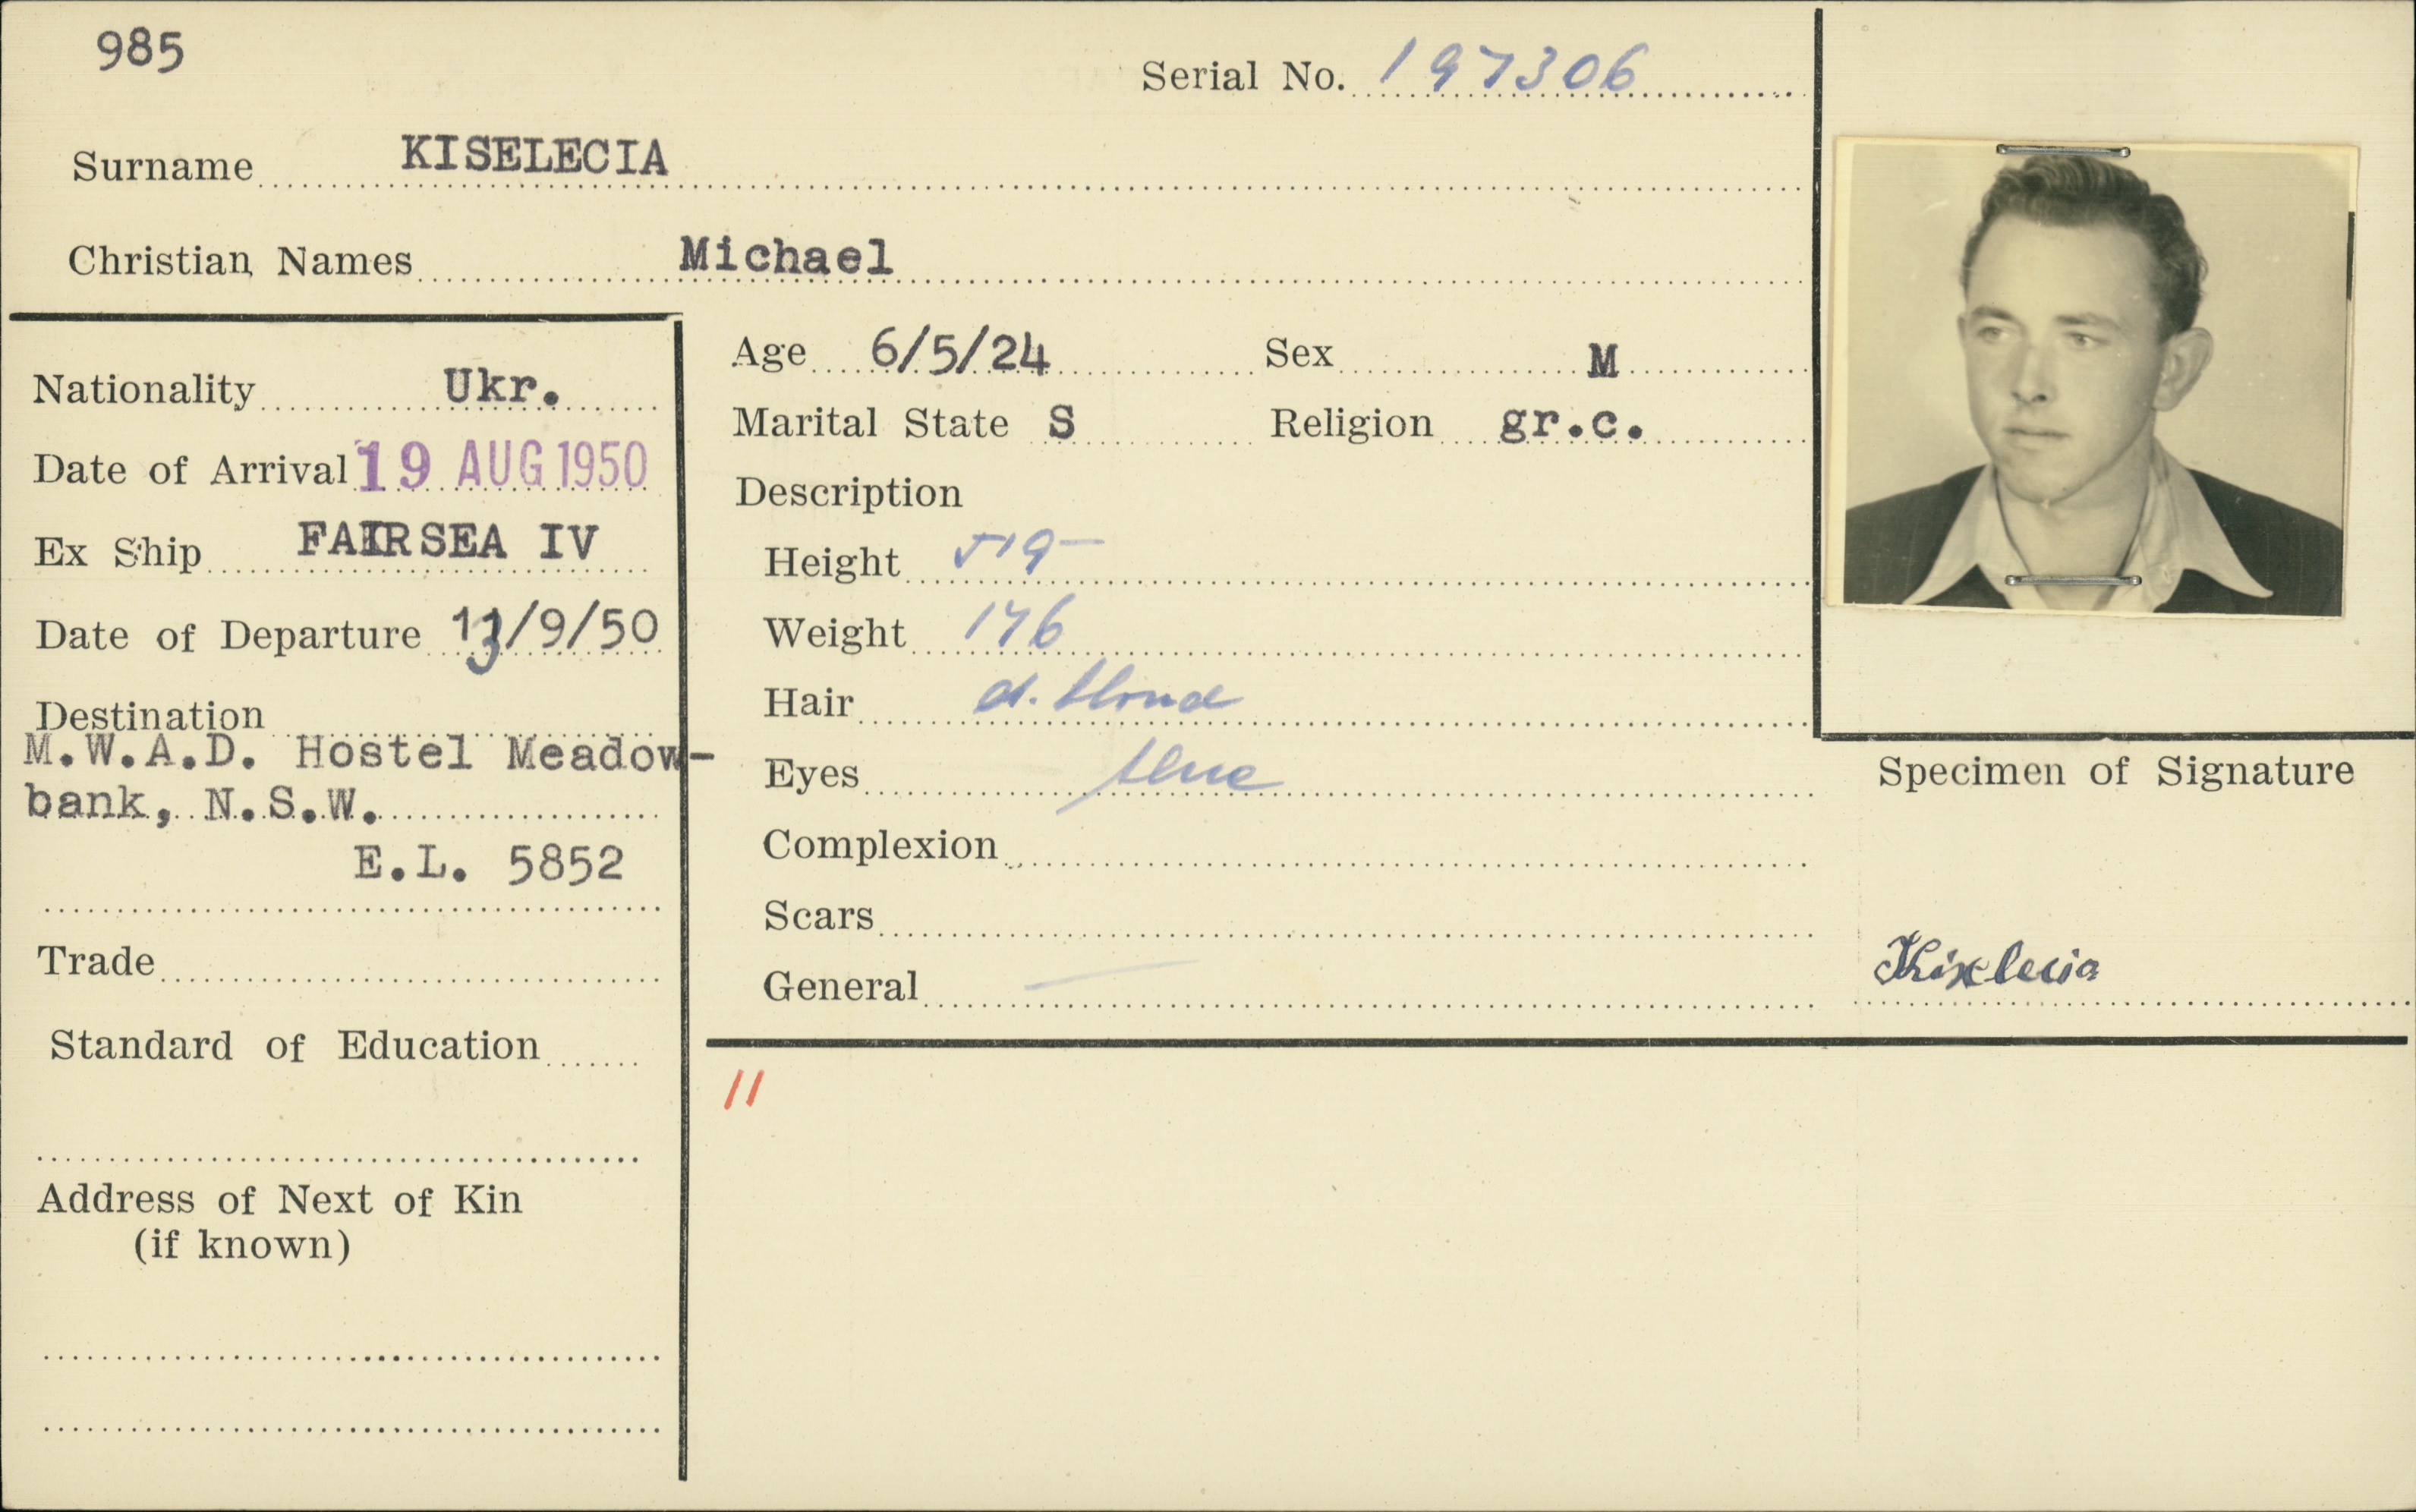 985
Serial No. 197306
Surname KISELECIA
Christian Names Michael
Nationality Ukr.
Date of Arrival 19 AUG 1950
Ex Ship FAIRSEA IV
Date of Departure 13/9/50
Destination
M.W.A.D. Hostel Meadow-
bank, N.S.W.
E.L. 5852
Trade
Standard of Education
Address of Next of Kin
(if known)
Age 6/5/24 Sex M
Marital State S Religion gr.c.
Description
Height 5'9
Weight 176
Hair d. blond
Eyes blue
Complexion
Scars
General
Specimen of Signature
Kiselecia
11